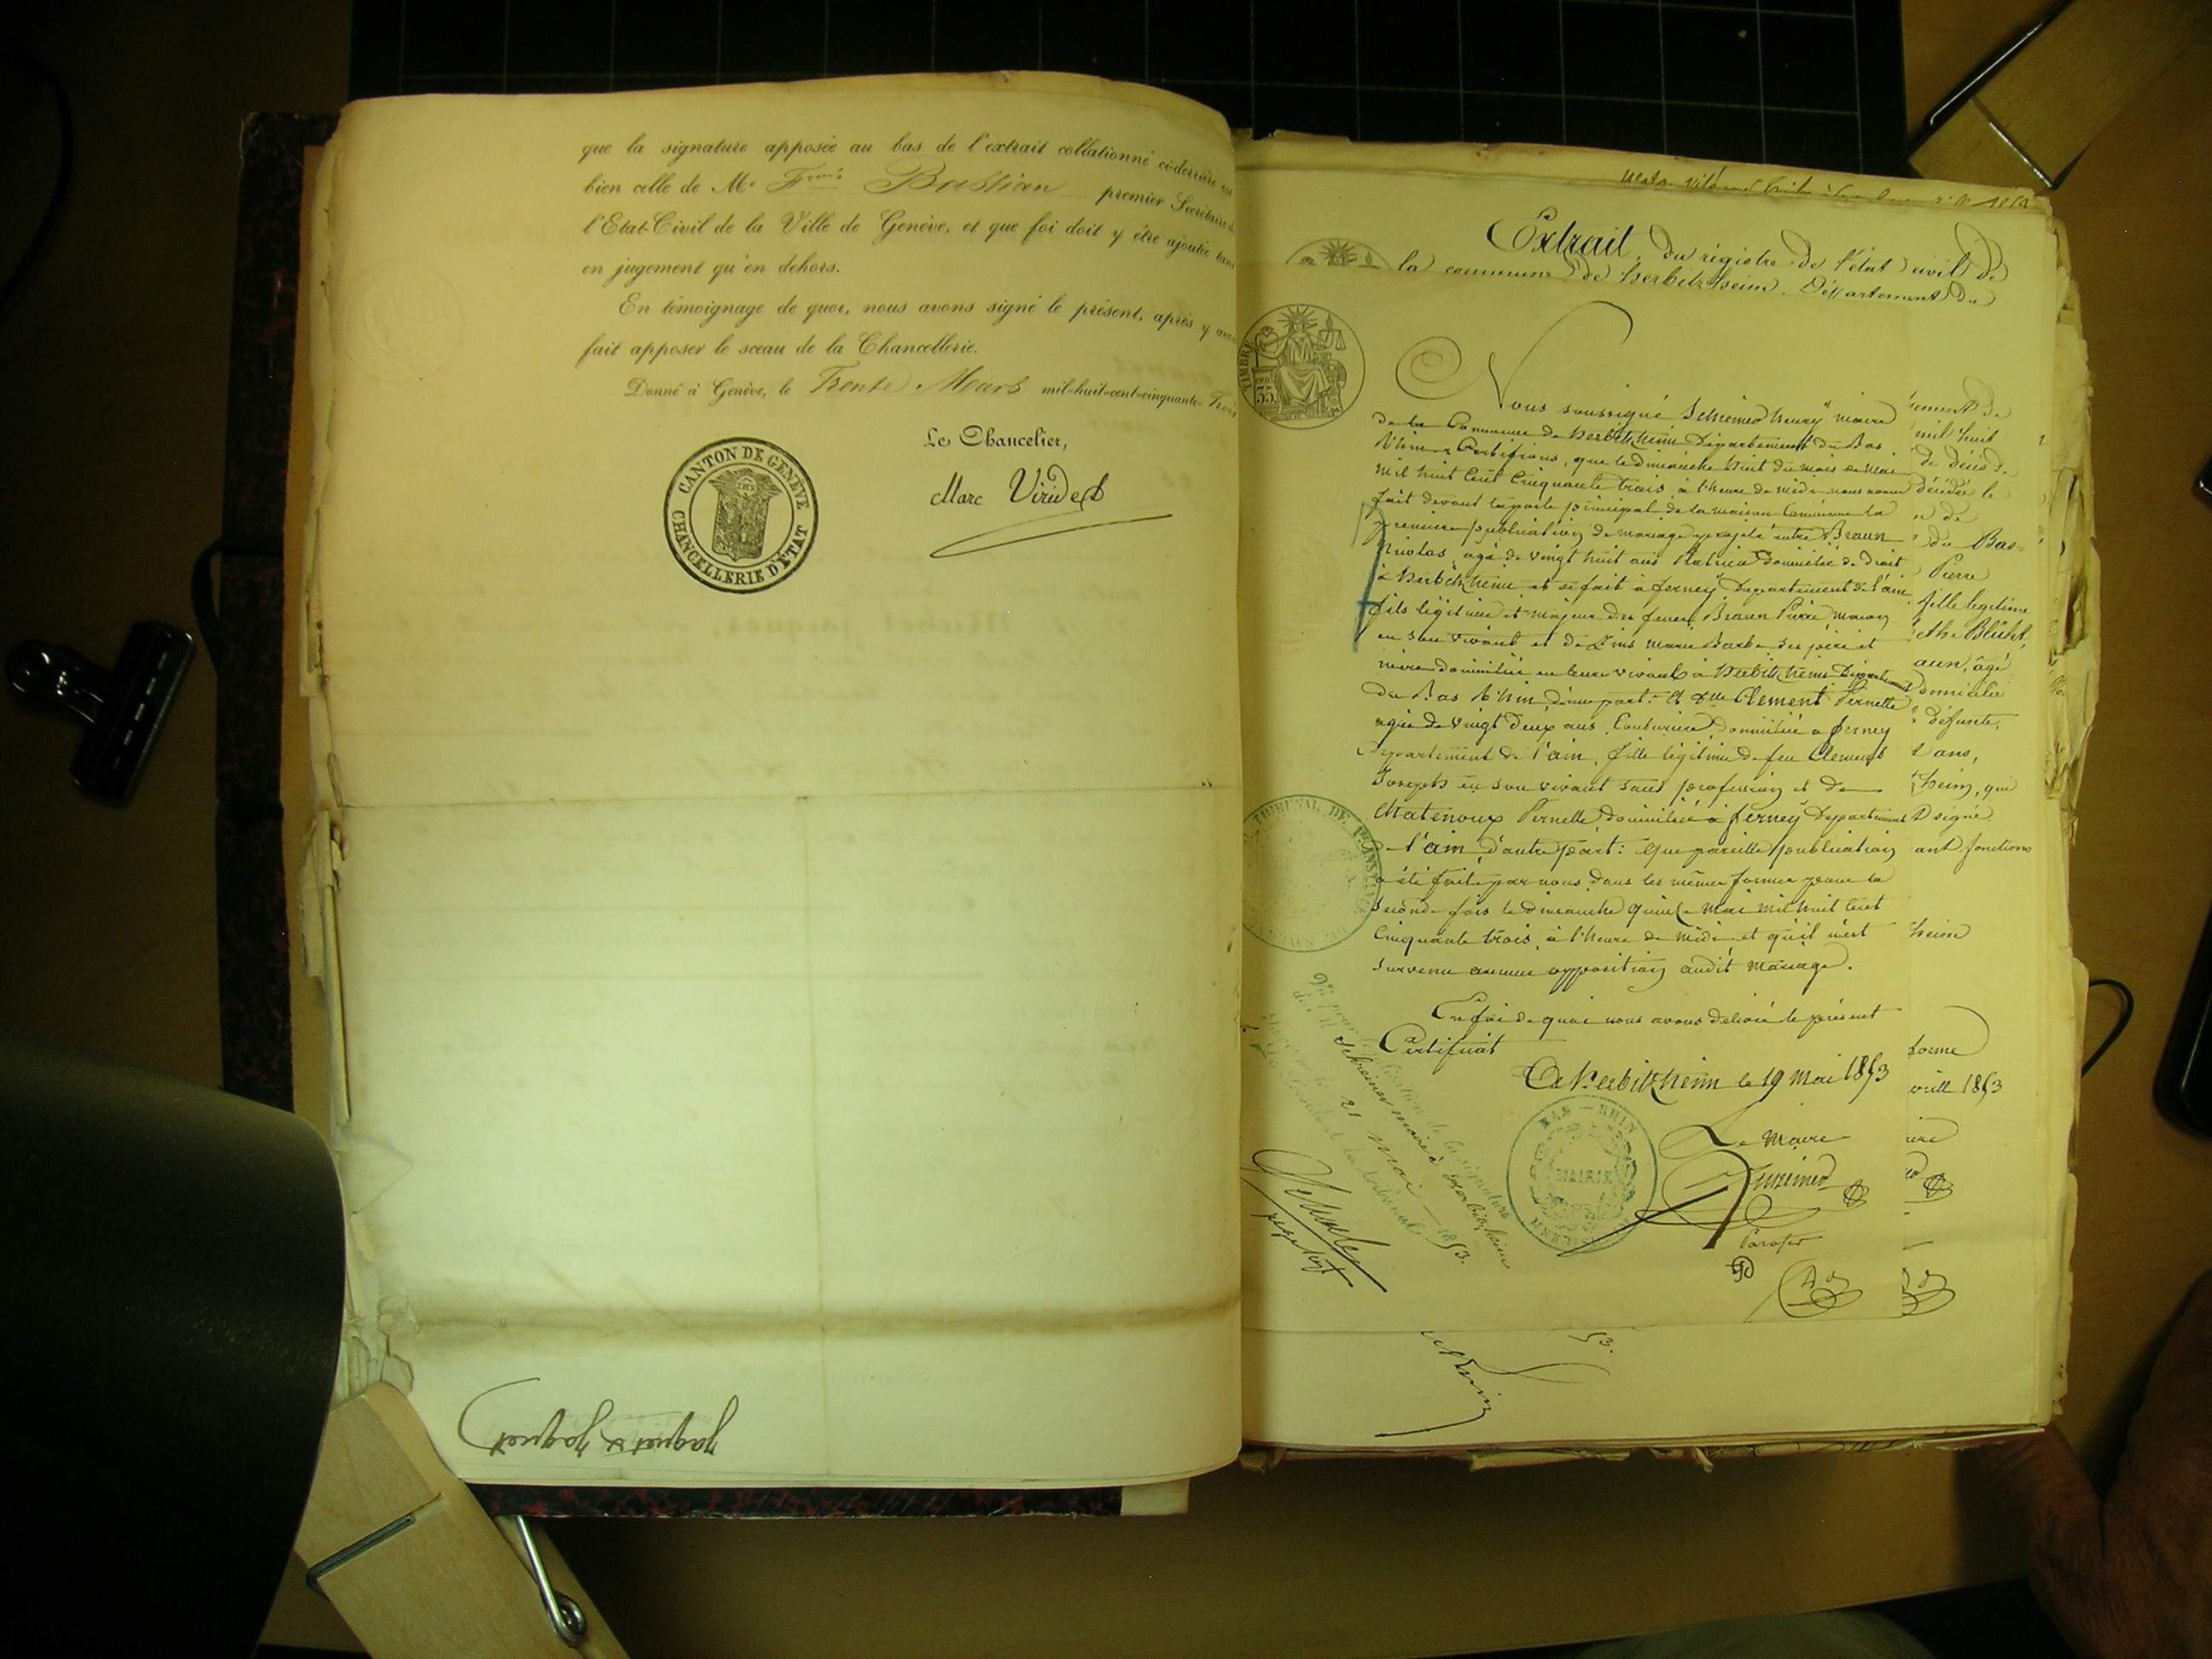 que la signature apposée au bas de l'extrait collationné ci-derrière est
bien celle de Mr. Fçois Bastian premier Secrétaire de
l'Etat-Civil de la Ville de Genève, et que foi doit y être ajoutée tant
en jugement qu'en dehors.
En témoignage de quoi, nous avons signé le présent, après y avoir
fait apposer le sceau de la Chancellerie.
Donné à Genève, le Trente Mars mil-huit-cent-cinquante-Trois
Le Chancelier,
Marc Viridet
CANTON DE GENÈVE
CHANCELLERIE D'ÉTAT
Jaquet & Jaquet
Extrait du régistre de l'état civil de
la commune de herbitzheim Département du
TIMBRE
35
Nous soussigné Schreiner henry maire
de la Commune de Herbitzheim Département du Bas
Rhin Certifions, que le dimanche huit du mois de Mai
mil huit Cent Cinquante trois à l'heure de midi nous avons
fait devant la porte principal de la maison Commune la
première publication de mariage projeté entre Braun
Nicolas agé de vingt huit ans Platrier domicilié de droit
à Herbitzheim et de fait à ferney Département de l'ain
fils légitime et majeur des feues Braun Pierre, maçon
en son vivant et de Zins Marie Barbe ses père et
mère domiciliés en leurs vivants à Herbitzheim Département
du Bas Rhin d'une part: Et Dlle Clement Pernette
agée de vingt deux ans, Couturière, domiciliée à ferney
Département de l'ain, fille légitime de feu Clement
Joseph en son vivant sans profession et de
Chatenoux Pernette, domiciliée à ferney Département
de l'ain, d'autre part: Que pareille publication
a été faite par nous dans les même formes pour la
seconde fois le dimanche quinze Mai mil huit Cent
Cinquante trois, à l'heure de midi et qu'il n'est
survenu aucune opposition audit mariage.
En foi de quoi nous avons délivré le présent
Certificat
A Herbitzheim le 19 Mai 1853
Le Maire
Schreiner
BAS-RHIN
MAIRIE
TRIBUNAL DE 1ère INSTANCE
de la signature
Schreiner maire à herbitzheim
21 mai 1853.
mil huit
de décès
décédée le
n de
du Bas-
Pierre
fille legitime
eth Blücht,
aun, âgé
domicilié
défunte,
t ans,
theim, qui
signé
ant fonctions
heim
forme
vrill 1853
53.